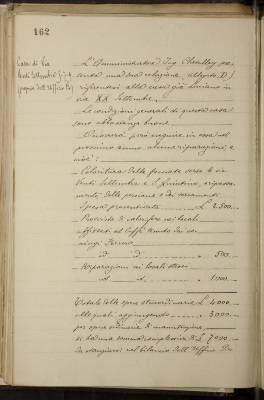 162
Casa di Via
Venti Settembre
L'Amministratore Ing. Chevalley pre-
senta una sua relazione (allegato D)
riflettente alla casa già Luciano in
via XX Settembre.
Le condizioni generali di questa casa
sono abbastanza buone.
Occorrerà però eseguire in essa nel
prossimo anno alcune riparazioni, e
cioè:
Coloritura delle facciate verso le vie
Venti Settembre e S. Quintino, ripassa-
mento delle persiane e dei serramenti.
Spesa preventivata L. 2.500.—
Provvista di calorifero nei locali
affittati al Caffè
" 500.—
Riparazioni ai locali stessi
" 1.000.—
Totale delle opere straordinarie L. 4.000.—
alle quali aggiungendo " 3.000.—
per opere ordinarie di manutenzione,
si ha una somma complessiva di L. 7.000.—
da stanziarsi nel bilancio dell'